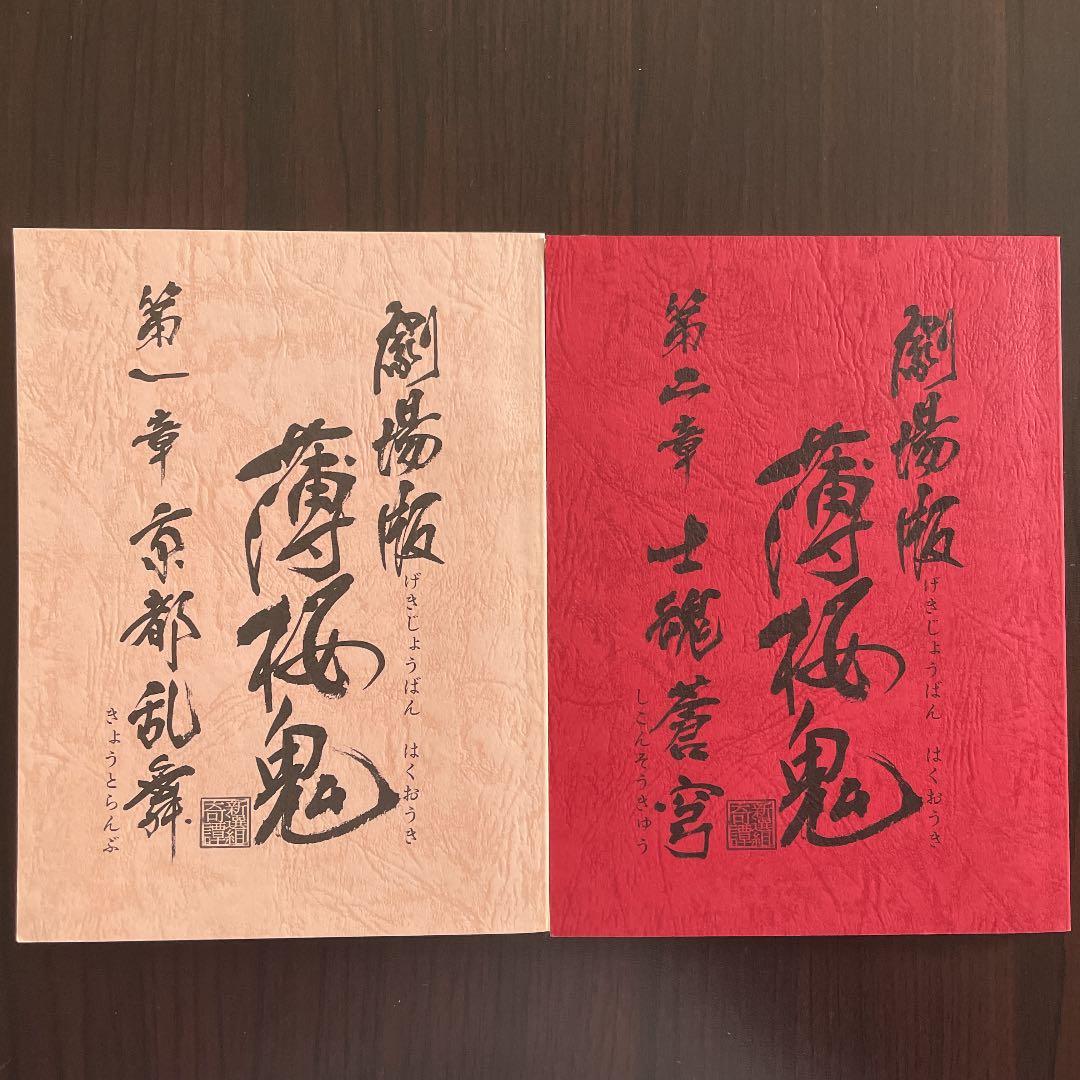 劇場版
げきじょうばん はくおうき
薄桜鬼
新選組
奇譚
第一章 京都乱舞
きょうとらんぶ
劇場版
げきじょうばん はくおうき
薄桜鬼
新選組
奇譚
第二章 士魂蒼穹
しこんそうきゅう